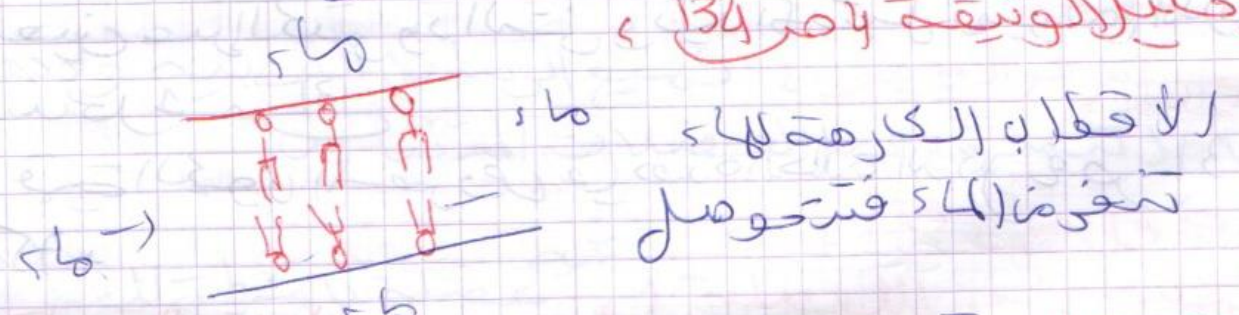 تحليل الوثيقة 4 ص 134
ماء
ماء
الأقطاب الكارهة للماء
تنفر من الماء فتتوضل
ماء
ماء